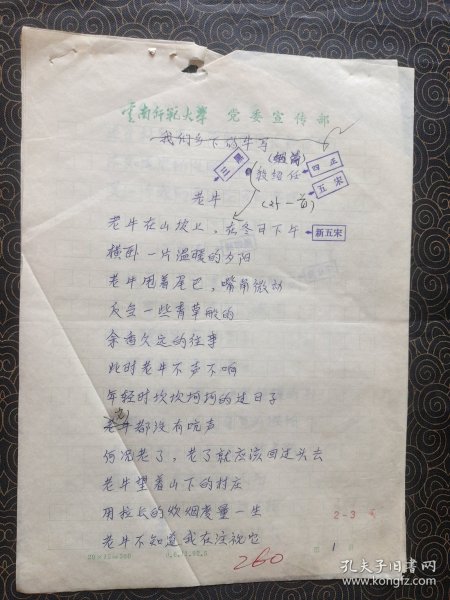 雲南师範大學 党委宣传部
我们乡下的牛号
(组诗)
三黑
四正
老牛
(外一首)
五宋
老牛在山坡上，在冬日下午
新五宋
横卧一片温暖的夕阳
老牛甩着尾巴，嘴角微动
反刍一些青草般的
此时老牛不声不响
年轻时坎坎坷坷的过日子
老牛都没有吭声
何况老了，老了就应该回过头去
老牛望着山下的村庄
用拉长的炊烟度量一生
老牛不知道我在注视它
2-3
260
20×15=300
第 1 页
孔夫子旧书网
kongfz.com